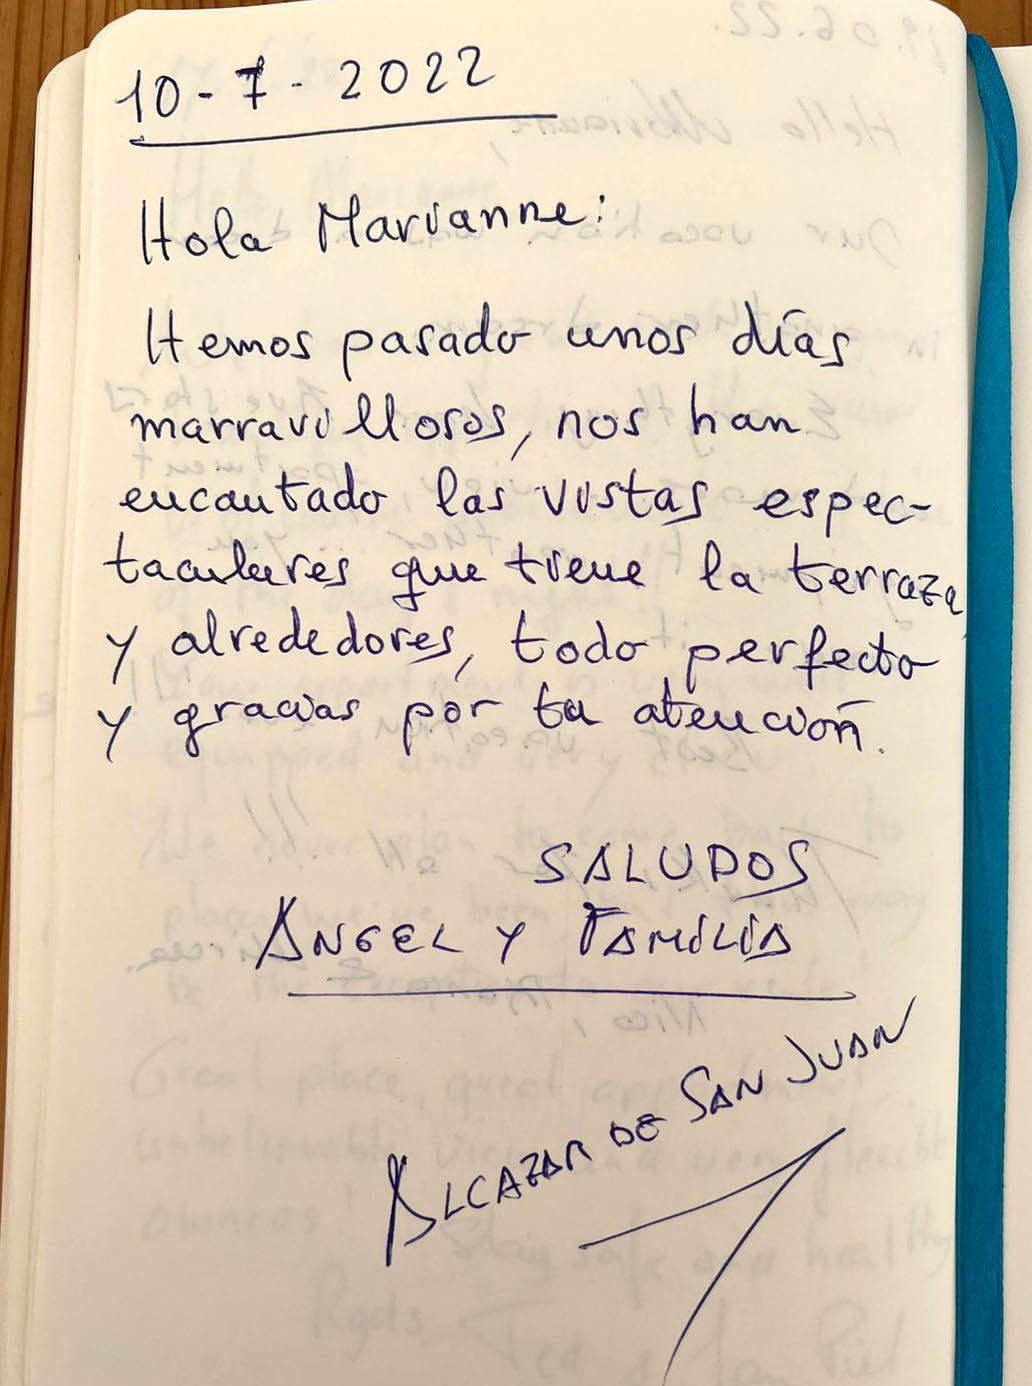 10-7-2022
Hola Marianne:
Hemos pasado unos días
marravillosos, nos han
encantado las vistas espec-
taculares que tiene la terraza
y alrededores, todo perfecto
y gracias por tu atención.
SALUDOS
ANGEL Y FAMILIA
ALCAZAR DE SAN JUAN